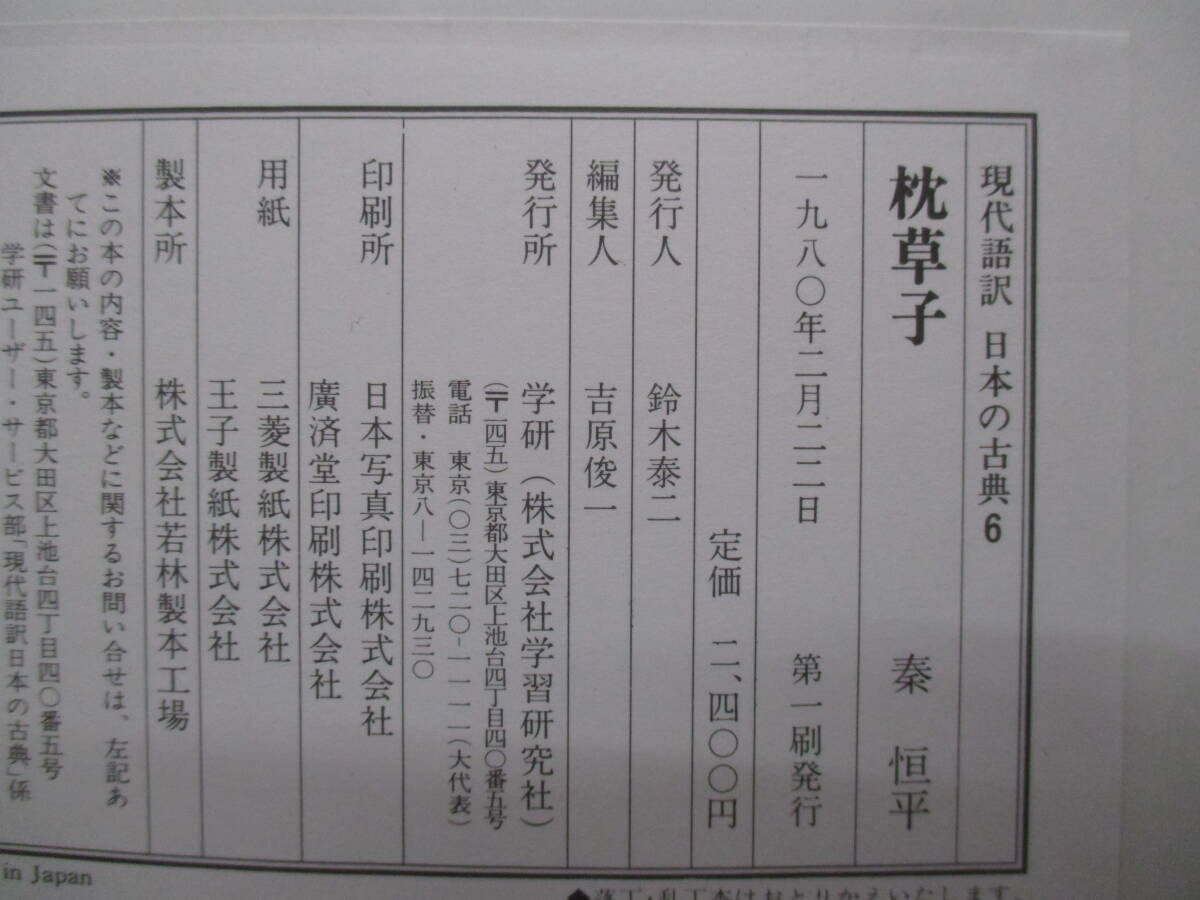 現代語訳 日本の古典6
枕草子 秦 恒平
一九八〇年二月二二日 第一刷発行
定価 二、四〇〇円
発行人 鈴木泰二
編集人 吉原俊一
発行所 学研(株式会社学習研究社)
(〒一四五)東京都大田区上池台四丁目四〇番五号
電話 東京(〇三)七二〇-一一一一(大代表)
振替・東京八―一四二九三〇
印刷所 日本写真印刷株式会社
廣済堂印刷株式会社
用紙 三菱製紙株式会社
王子製紙株式会社
製本所 株式会社若林製本工場
※この本の内容・製本などに関するお問い合せは、左記あ
てにお願いします。
文書は(〒一四五)東京都大田区上池台四丁目四〇番五号
学研ユーザー・サービス部「現代語訳日本の古典」係
in Japan
◆落丁・乱丁本はおとりかえいたします。